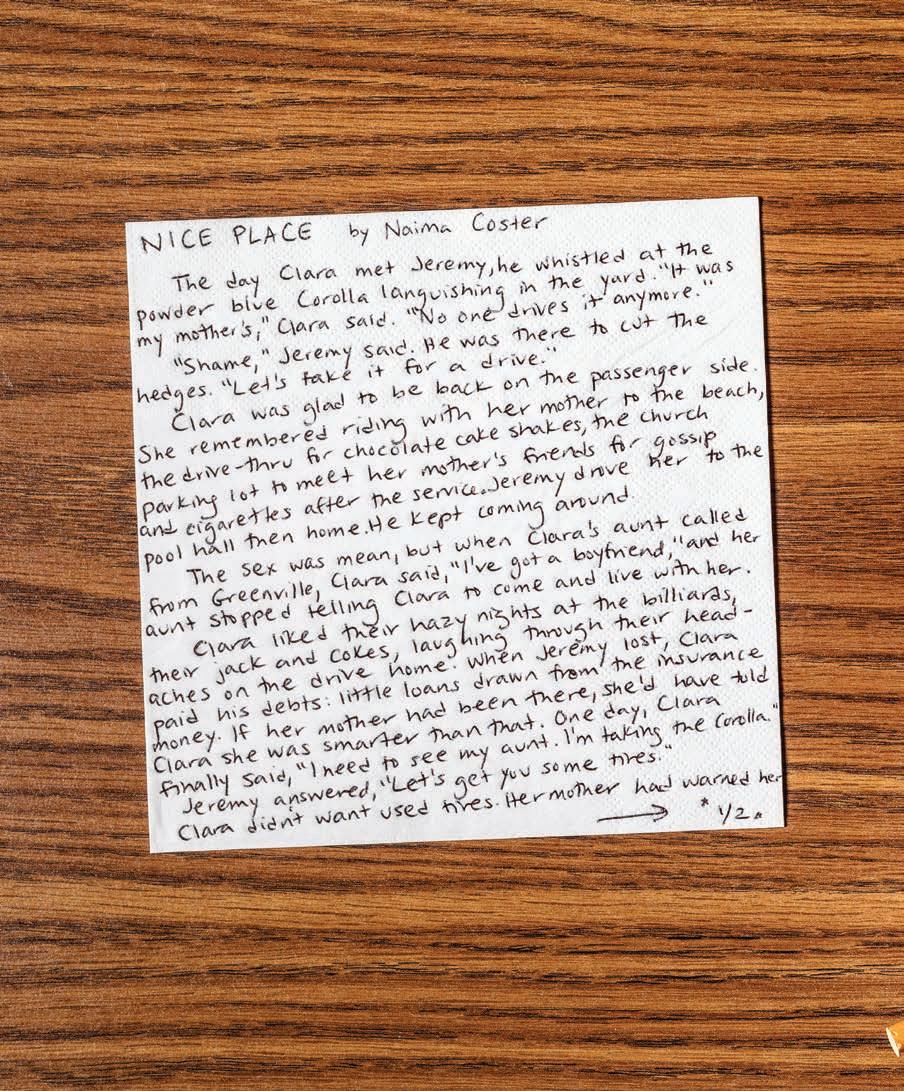 NICE PLACE by Naima Coster
The day Clara met Jeremy, he whistled at the
powder blue Corolla languishing in the yard. "It was
my mother's," Clara said. "No one drives it anymore."
"Shame," Jeremy said. He was there to cut the
hedges. "Let's take it for a drive."
Clara was glad to be back on the passenger side.
She remembered riding with her mother to the beach,
the drive-thru for chocolate cake shakes, the church
parking lot to meet her mother's friends for gossip
and cigarettes after the service. Jeremy drove her to the
pool hall then home. He kept coming around.
The sex was mean, but when Clara's aunt called
from Greenville, Clara said, "I've got a boyfriend," and her
aunt stopped telling Clara to come and live with her.
Clara liked their hazy nights at the billiards,
their jack and cokes, laughing through their head-
aches on the drive home. When Jeremy lost, Clara
paid his debts: little loans drawn from the insurance
money. If her mother had been there, she'd have told
Clara she was smarter than that. One day, Clara
finally said, "I need to see my aunt. I'm taking the Corolla."
Jeremy answered, "Let's get you some tires."
Clara didn't want used tires. Her mother had warned her
→ * 1/2 *